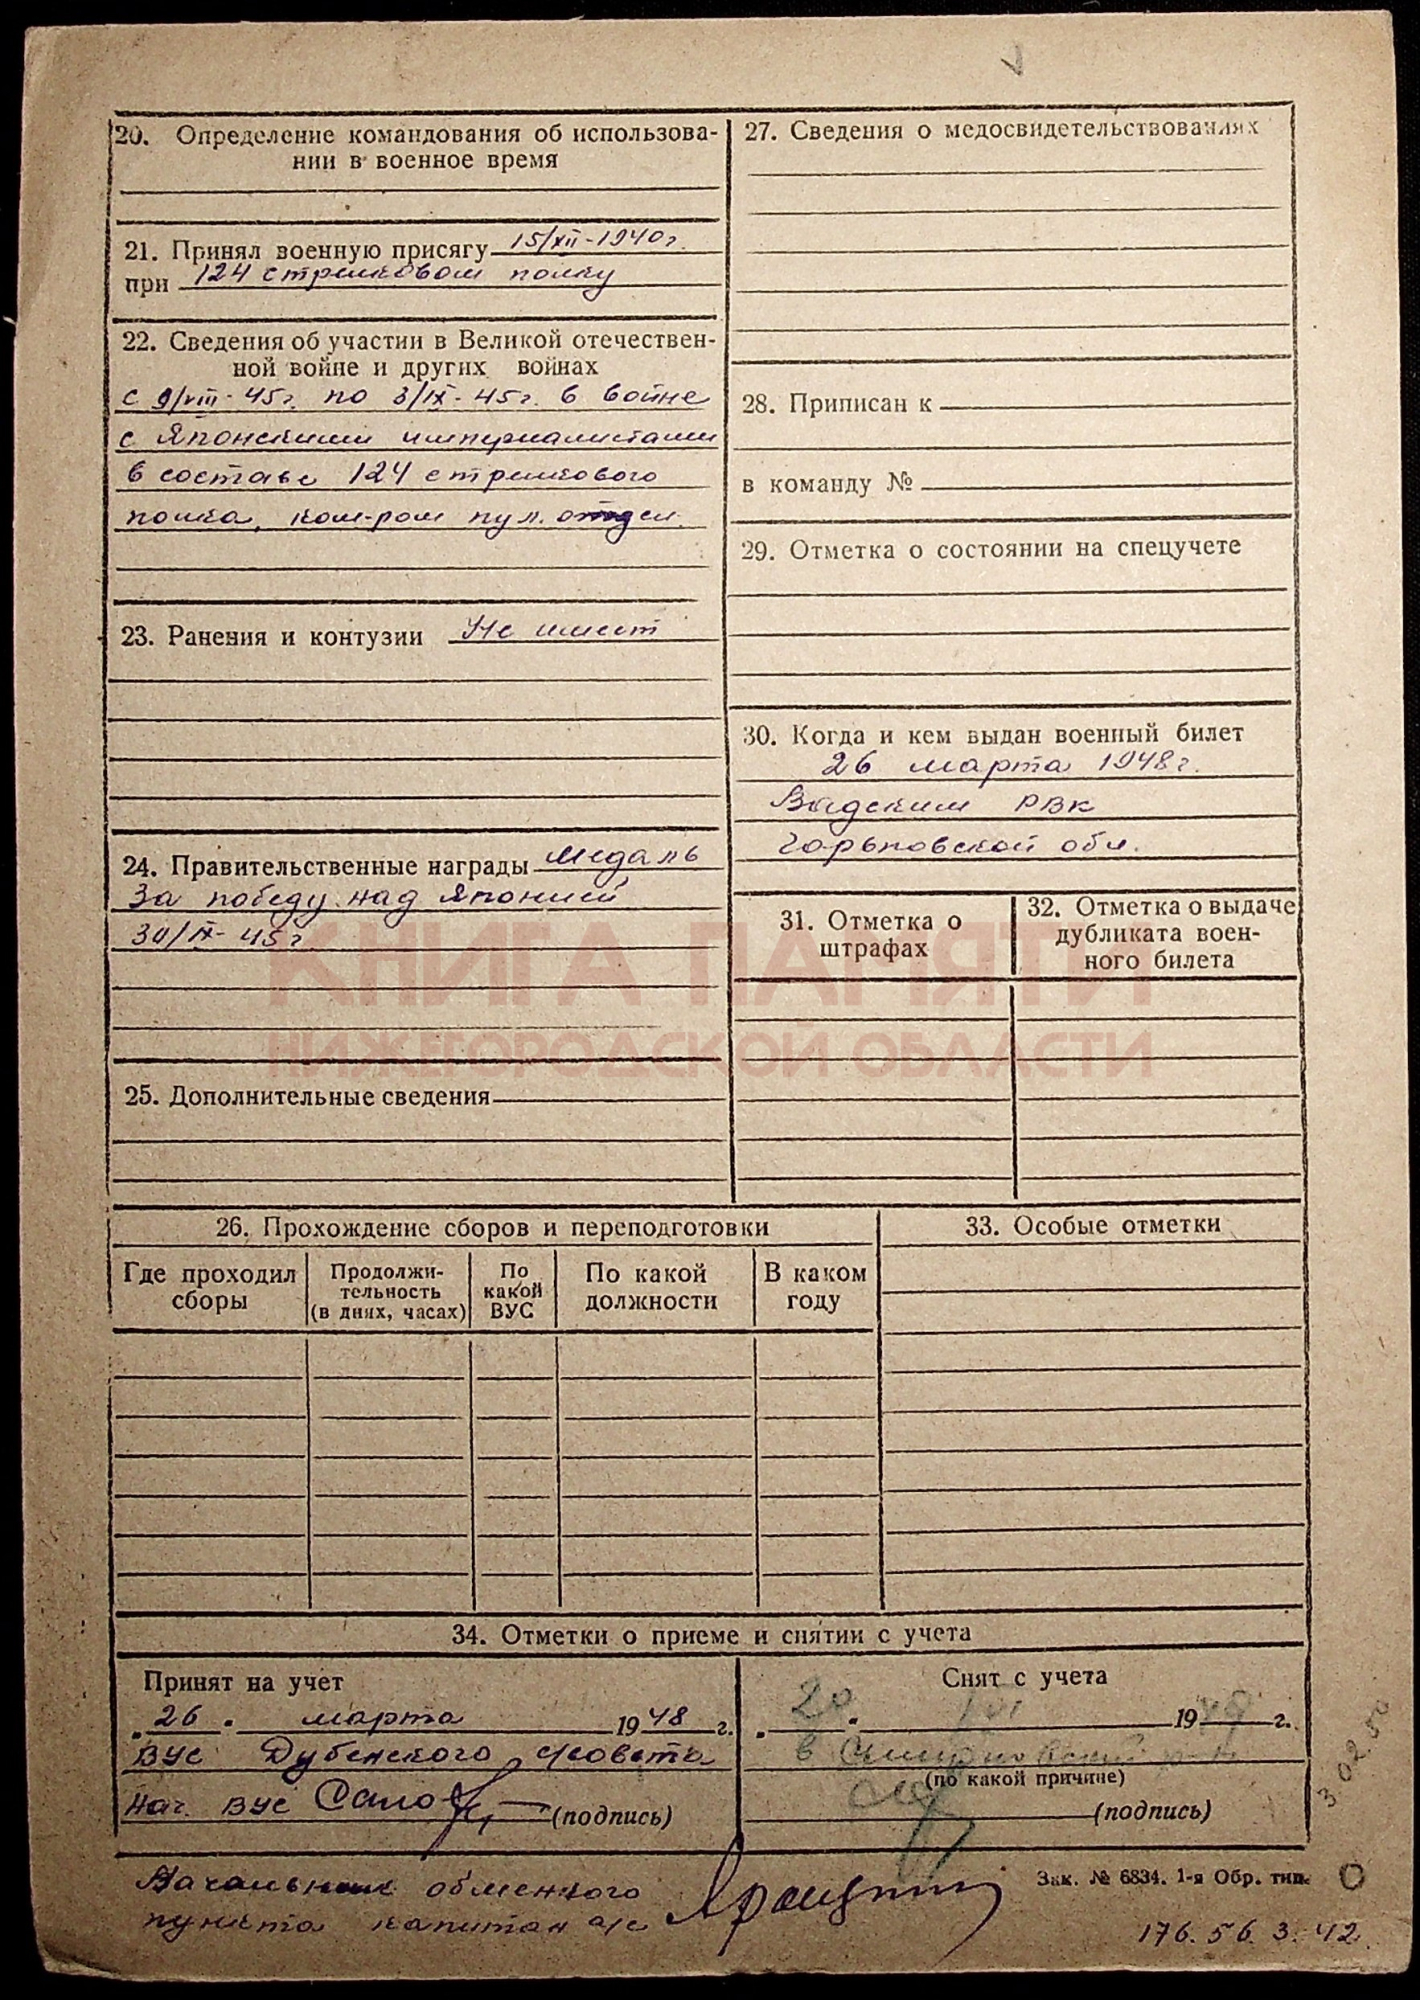 20. Определение командования об использова-
нии в военное время
21. Принял военную присягу 15/XII-1940г.
при 124 стрелковом полку
22. Сведения об участии в Великой отечествен-
ной войне и других войнах
с 9/VIII-45г. по 3/IX-45г. в войне
с Японскими империалистами
в составе 124 стрелкового
полка, ком-ром пул. отдел.
23. Ранения и контузии Не имеет
24. Правительственные награды Медаль
За победу над Японией
30/IX-45г
25. Дополнительные сведения
27. Сведения о медосвидетельствованиях
28. Приписан к
в команду №
29. Отметка о состоянии на спецучете
30. Когда и кем выдан военный билет
26 марта 1948г.
Вадским РВК
Горьковской обл.
31. Отметка о
штрафах
32. Отметка о выдаче
дубликата воен-
ного билета
КНИГА ПАМЯТИ
НИЖЕГОРОДСКОЙ ОБЛАСТИ
26. Прохождение сборов и переподготовки
Где проходил
сборы
Продолжи-
тельность
(в днях, часах)
По
какой
ВУС
По какой
должности
В каком
году
33. Особые отметки
34. Отметки о приеме и снятии с учета
Принят на учет
„26" марта 1948 г.
ВУС Дубенского с/совета
Нач. ВУС (подпись)
Снят с учета
„20" 19 г.
в
(по какой причине)
(подпись)
Начальник обменного
пункта капитан а/с
Зак. № 6834. 1-я Обр. тип.
176. 56. 3. 42.
3 02.50